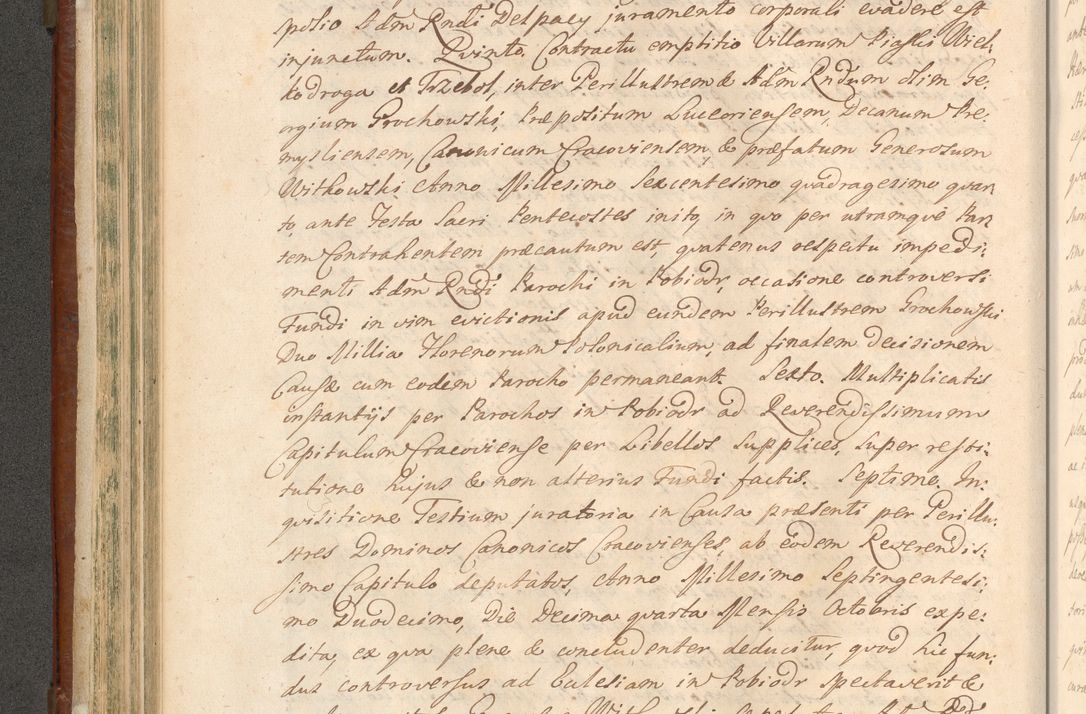 spolio Adm Rndi Delpacy juramento corporali evadere est
injunctum. Qvinto. Contractu emptitio Villarum Piaski Wiel,
kodroga et Trzebol, inter Perillustrem & Adm Rndum olim Ge,
orgium Grochowski, Præpositum Luceoriensem, Decanum Pre,
mysliensem, Canonicum Cracoviensem, & præfatum Generosum
Witkowski Anno Millesimo Sexcentesimo quadragesimo quar
to, ante Festa Sacri Pentecostes inito, in qvo per utramqve Par,
tem Contrahentem præcautum est, qvatenus respectu impedi,
menti Adm Rndi Parochi in Pobiodr, occasione controversi
Fundi in vim evictionis apud eundem Perillustrem Grochowski
Duo Millia Florenorum Polonicalium, ad finalem decisionem
Causæ cum eodem Parocho permaneant. Sexto. Multiplicatis
instantijs per Parochos in Pobiodr ad Reverendissimum
Capitulum Cracoviense per Libellos Supplices, super resti,
tutione hujus & non alterius Fundi factis. Septimo. In,
qvisitione Testium juratoria in Causa præsenti per Perillu,
stres Dominos Canonicos Cracovienses, ab eodem Reverendis,
simo Capitulo deputatos, Anno Millesimo Septingentesi,
mo Duodecimo, Die Decima qvarta Mensis Octobris expe,
dita, ex qva plene & concludenter deducitur, qvod hic fun,
dus controversus ad Eclesiam in Pobiodr spectaverit &